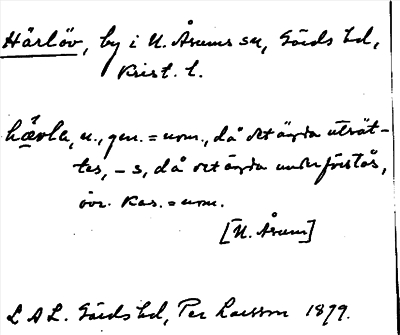 Härlöv, by i N. Åsums sn, Gärds hd,
Krist. l.
hä̂rla, n., gen. = nom., då det ägda utsät-
tes, – s, då det ägda underförstås,
övr. kas. = nom.
[N. Åsum]
L A L. Gärds hd, Per Larsson 1899.